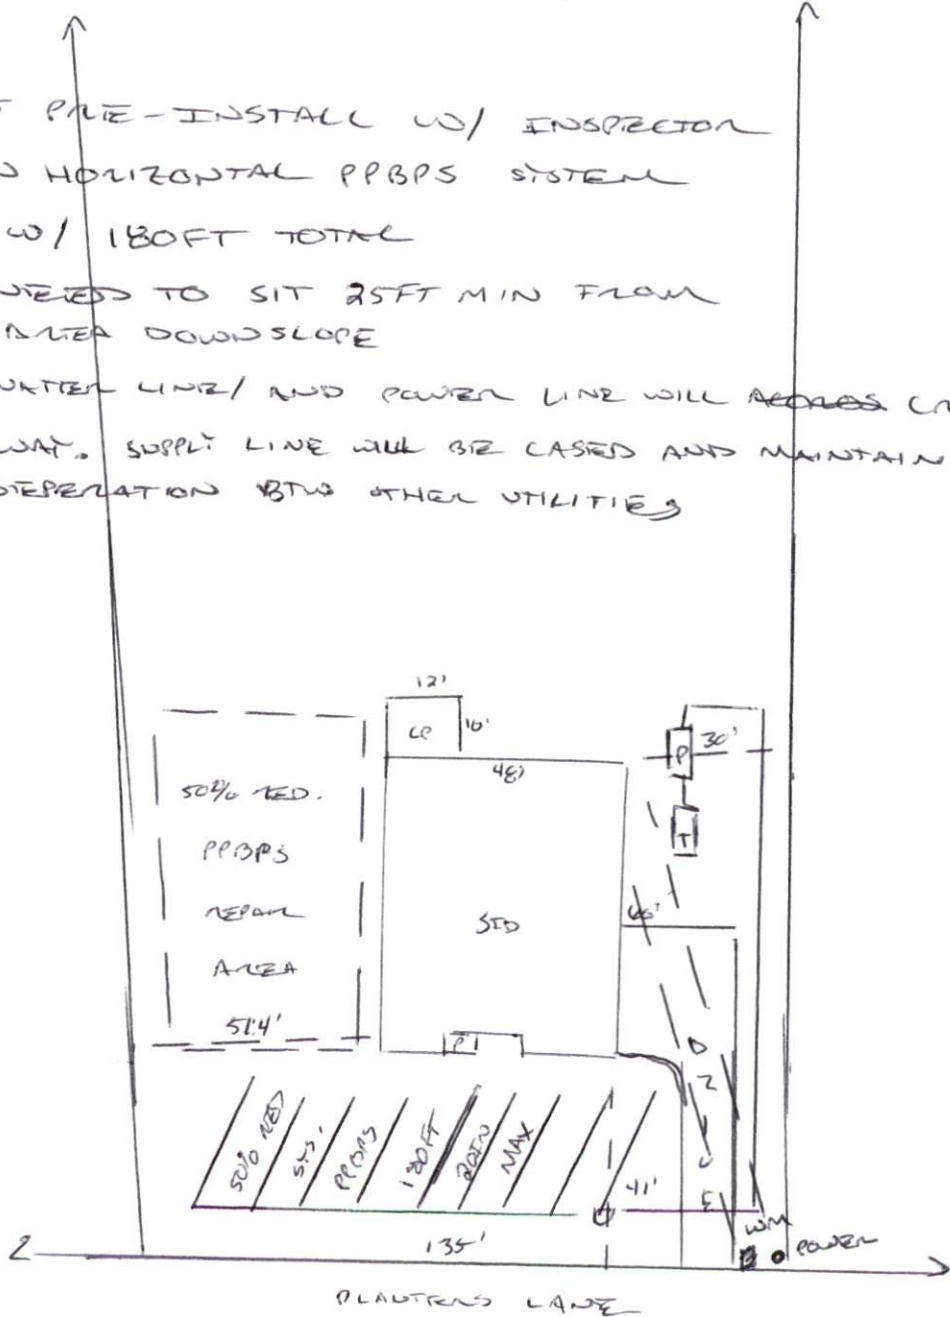 PRE-INSTALL W/ INSPECTOR
HORIZONTAL PPBPS SYSTEM
W/ 180FT TOTAL
TO SIT 25FT MIN FROM
AREA DOWNSLOPE
LINE/ AND POWER LINE WILL
SUPPLY LINE WILL BE CASED AND MAINTAIN
BTW OTHER UTILITIES
12'
CP
10'
48'
P
30'
T
50% RED.
PPBPS
REPAIR
AREA
51.4'
SFD
P
50% RED
SYS.
PPBPS
180FT
20IN
MAX
41'
WM
POWER
135'
PLANTERS LANE